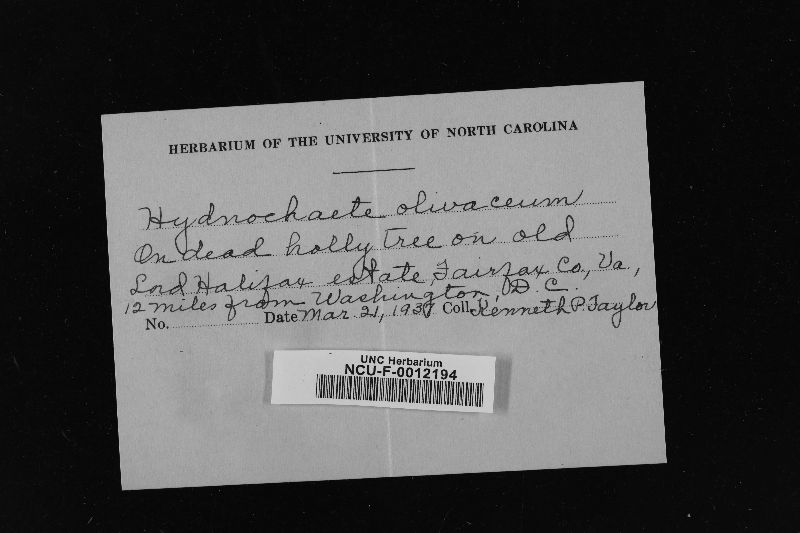 HERBARIUM OF THE UNIVERSITY OF NORTH CAROLINA
Hydnochaete olivaceum
On dead holly tree on old
Lord Halifax estate, Fairfax Co., Va.,
12 miles from Washington, D. C.
No. Date Mar. 21, 1937 Coll. Kenneth P. Taylor
UNC Herbarium
NCU-F-0012194